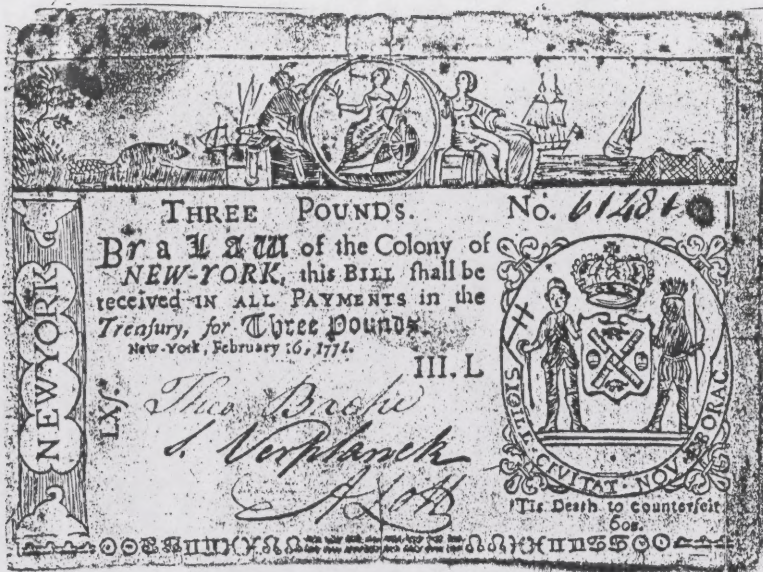 THREE POUNDS.
No. 61481
By a LAW of the Colony of
NEW-YORK, this BILL shall be
received IN ALL PAYMENTS in the
Treasury, for Three Pounds.
New-York, February 16, 1771.
III. L
NEW-YORK
LXs
Theo
S. Verplanck
A Lott
SIGILL · CIVITAT · NOV · EBORAC
'Tis Death to counterfeit
60s.